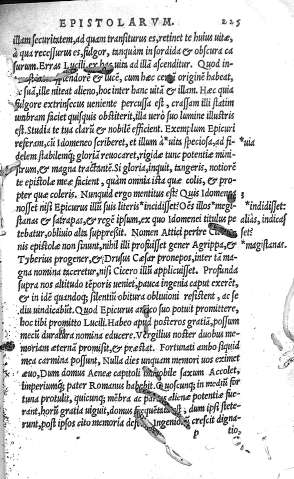 EPISTOLARVM. 225
illam securitatem, ad quam transiturus es, retinet te huius uitæ,
à qua recessurus es, fulgor, tanquàm in sordida & obscura ca
surum. Erras Lucili, ex hac uita ad illã ascenditur. Quod in
splendorẽ & lucẽ, cum hæc originẽ habeat,
suã, ille niteat alieno, hoc inter hanc uitã & illam. Hæc quia
fulgore extrinsecus ueniente percussa est, crassam illi statim
umbram faciet quisquis obstiterit, illa uerò suo lumine illustris
est. Studia te tua clarũ & nobilẽ efficient. Exemplum Epicuri
referam, cũ Idomeneo scriberet, et illum à *uita speciosa, ad fi- *uia
delem stabilemq; gloriã reuocaret, rigidæ tunc potentiæ mini-
strum, & magna tractantẽ. Si gloria, inquit, tangeris, notiorẽ
te epistolæ meæ facient, quàm omnia ista quæ colis, & pro-
pter quæ coleris. Nunquid ergo mentitus est? Quis Idomenea
nosset nisi Epicurus illũ suis literis *incidisset? Oẽs illos *megi- *indidisset:
stanas & satrapas, & regẽ ipsum, ex quo Idomenei titulus pe alias, indicas
tebatur, obliuio alta suppressit. Nomen Attici perire set.
nis epistolæ non sinunt, nihil illi profuisset gener Agrippa, & *magistanas.
Tyberius progener, & Drusus Cæsar pronepos, inter tã ma-
gna nomina taceretur, nisi Cicero illũ applicuisset. Profunda
supra nos altitudo tẽporis ueniet, pauca ingenia caput exerẽt,
& in idẽ quandoq; silentiũ obitura obliuioni resistent, ac se
diu uindicabũt. Quod Epicurus amico suo potuit promittere,
hoc tibi promitto Lucili. Habeo apud posteros gratiã, possum
mecũ duratura nomina educere. Vergilius noster duobus me-
moriam æternã promisit, & præstat. Fortunati ambo siquid
mea carmina possunt, Nulla dies unquam memori uos eximet
æuo, Dum domus Aeneæ capitoli immobile saxum Accolet,
imperiumq; pater Romanus habebit. Quoscunq; in mediũ for
tuna protulit, quicunq; mẽbra ac partes alienæ potentiæ fue-
rant, horũ gratia uiguit, domus frequentata est, dum ipsi stete-
runt, post ipsos citò memoria defecit. Ingeniorũ crescit digna
p tio,